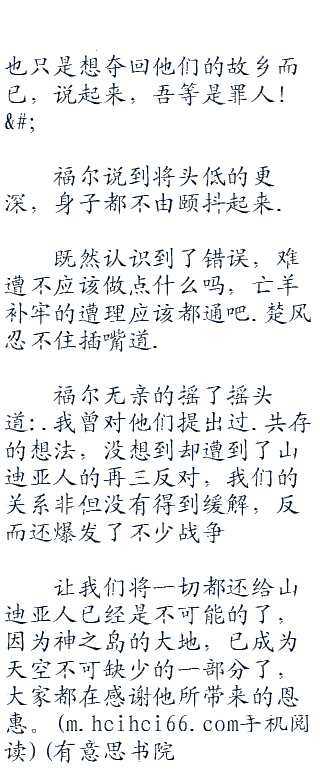 也只是想夺回他们的故乡而
已，说起来，吾等是罪人！
&#;
福尔说到将头低的更
深，身子都不由颐抖起来.
既然认识到了错误，难
遭不应该做点什么吗，亡羊
补牢的遭理应该都通吧.楚风
忍不住插嘴道.
福尔无亲的摇了摇头
道:.我曾对他们提出过.共存
的想法，没想到却遭到了山
迪亚人的再三反对，我们的
关系非但没有得到缓解，反
而还爆发了不少战争
让我们将一切都还给山
迪亚人已经是不可能的了，
因为神之岛的大地，已成为
天空不可缺少的一部分了，
大家都在感谢他所带来的恩
惠。(m.hcihci66.com手机阅
读)(有意思书院